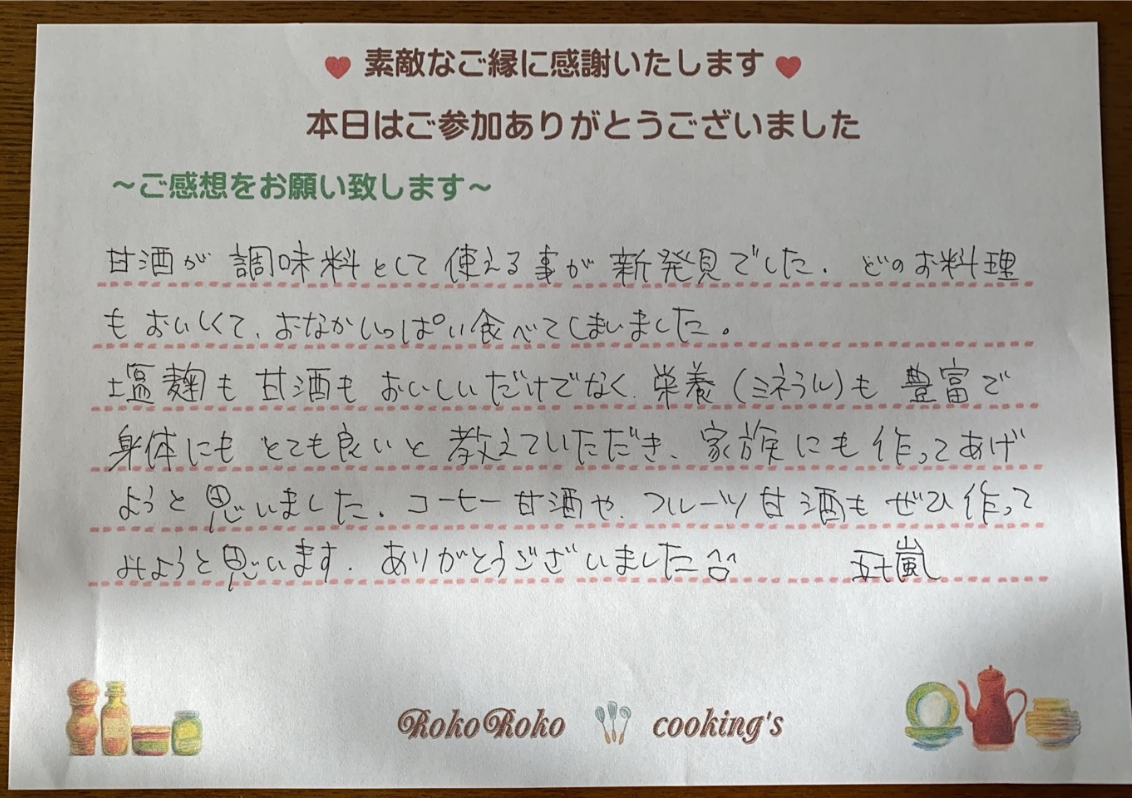 素敵なご縁に感謝いたします
本日はご参加ありがとうございました
～ご感想をお願い致します～
甘酒が調味料として使える事が新発見でした。どのお料理
もおいしくて、おなかいっぱい食べてしまいました。
塩麹も甘酒もおいしいだけでなく、栄養(ミネラル)も豊富で
身体にもとても良いと教えていただき、家族にも作ってあげ
ようと思いました。コーヒー甘酒や、フルーツ甘酒もぜひ作って
みようと思います。ありがとうございました^^ 五十嵐
RokoRoko cooking's